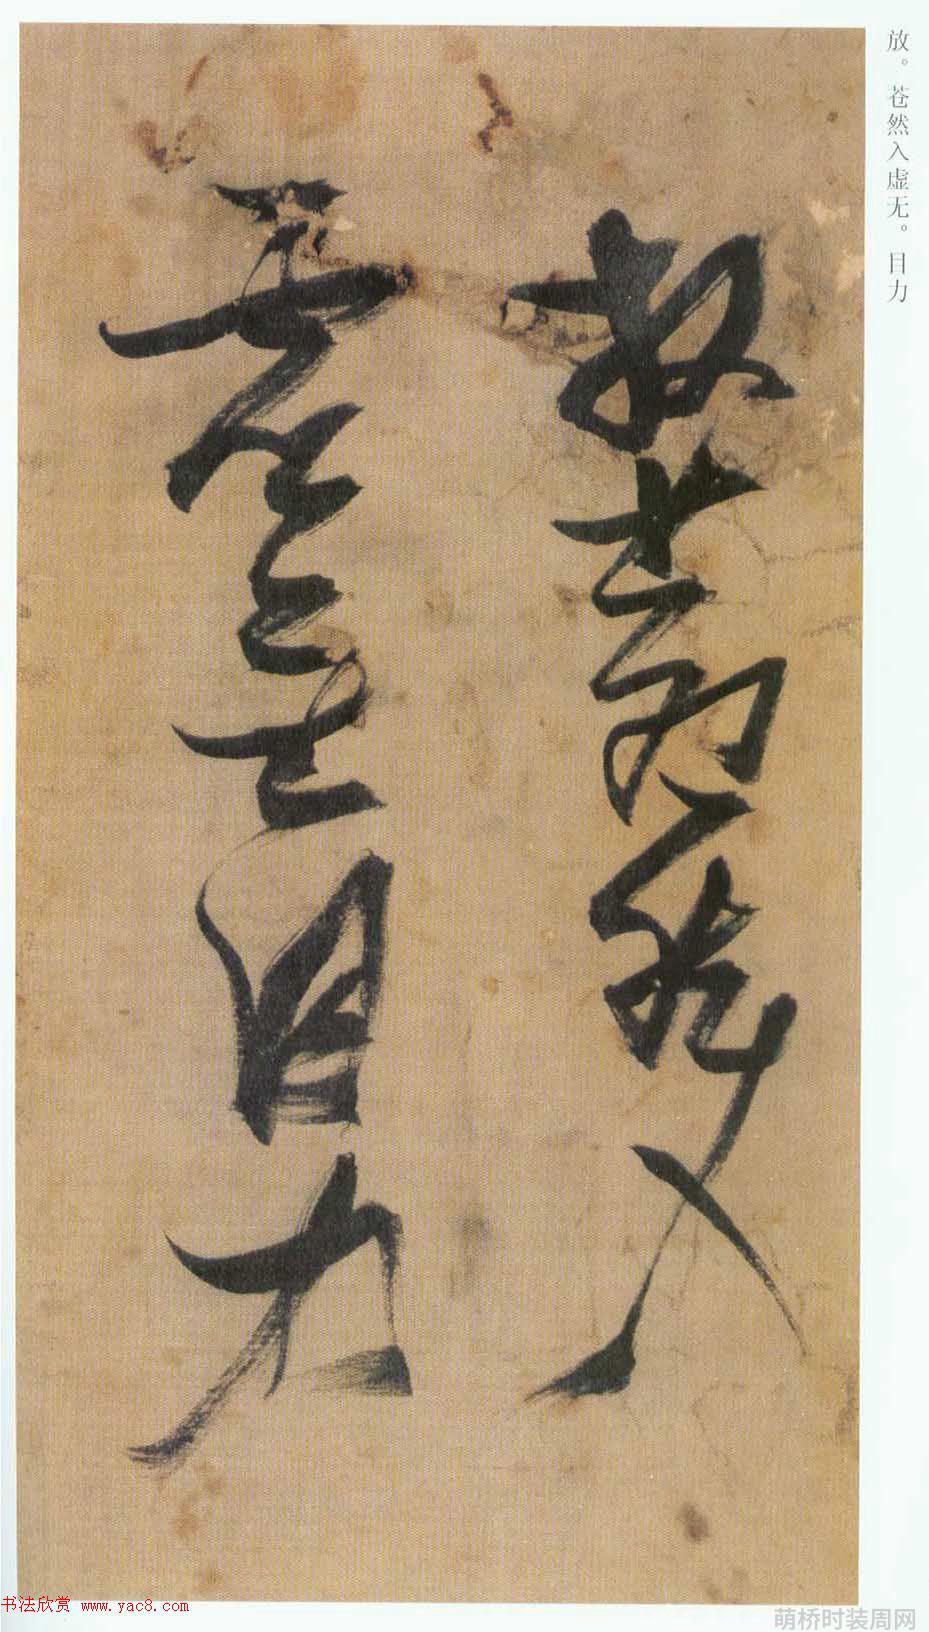 放。苍然入虚无。目力
放蒼然入
虛無目力
书法欣赏 www.yac8.com
萌桥时装周网